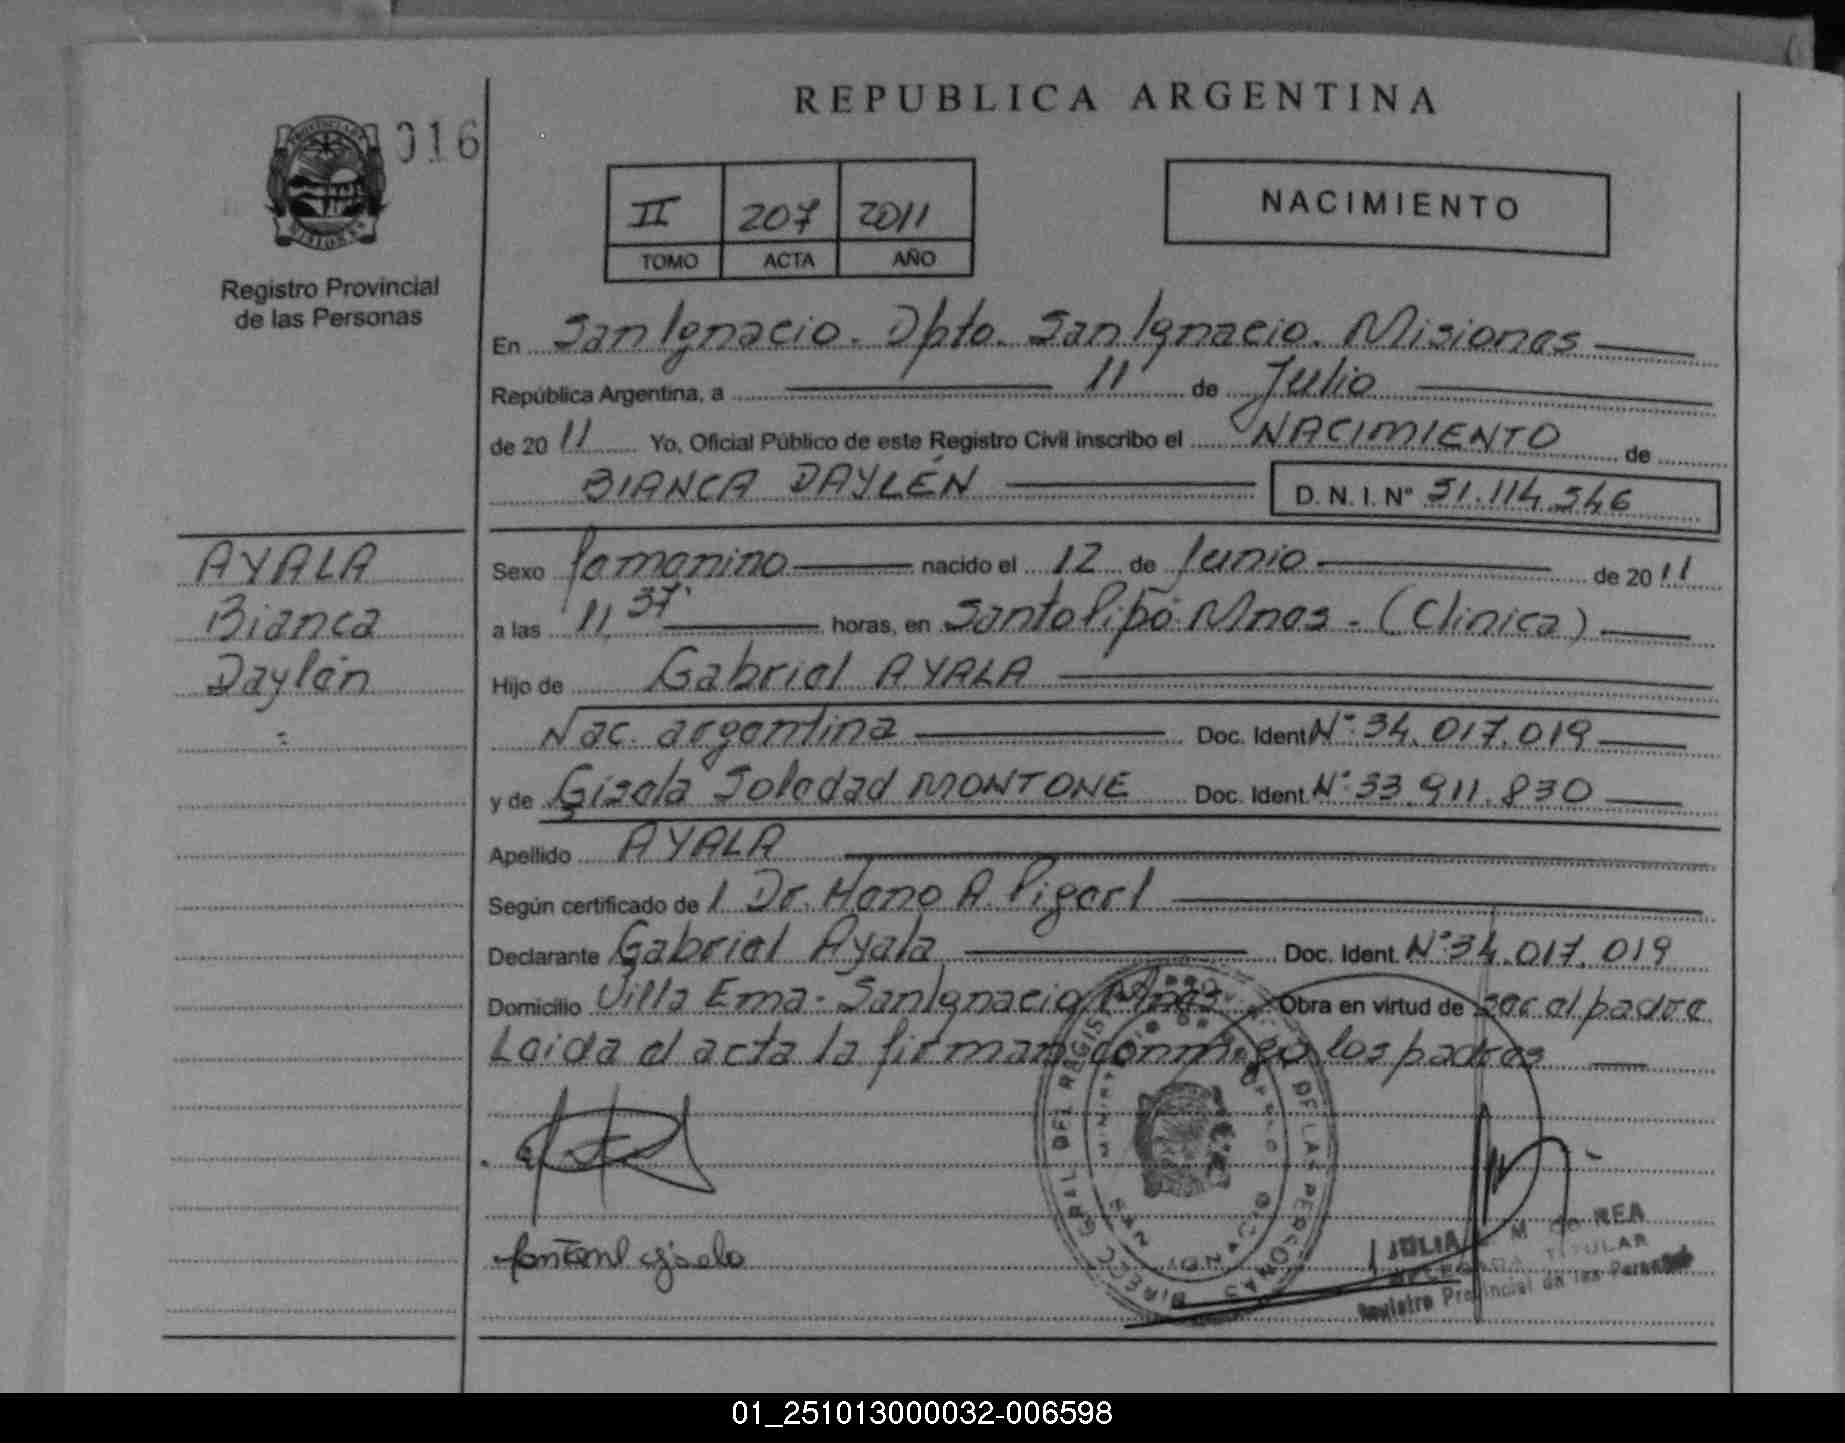 REPUBLICA ARGENTINA
016
II 207 2011
TOMO ACTA AÑO
NACIMIENTO
Registro Provincial
de las Personas
En San Ignacio. Dpto. San Ignacio. Misiones
República Argentina, a 11 de Julio
de 2011 Yo, Oficial Público de este Registro Civil inscribo el NACIMIENTO de
BIANCA DAYLÉN D. N. I. Nº 51.114.546
AYALA
Bianca
Daylén
Sexo femenino nacido el 12 de Junio de 2011
a las 11 37' horas, en Santo Pipó Mnes - (Clinica)
Hijo de Gabriel AYALA
Nac. argentina Doc. Ident Nº 34.017.019
y de Gisela Soledad MONTONE Doc. Ident. Nº 33.911.830
Apellido AYALA
Según certificado de l Dr. A.
Declarante Gabriel Ayala Doc. Ident. Nº 34.017.019
Domicilio Villa Ema - San Ignacio Mnes Obra en virtud de ser el padre
Leida el acta la firman conmigo los padres
DIRECC. GRAL DEL REGIS DE LAS PERSONAS
JULIA M
TITULAR
Registro Provincial de las Personas
01_251013000032-006598